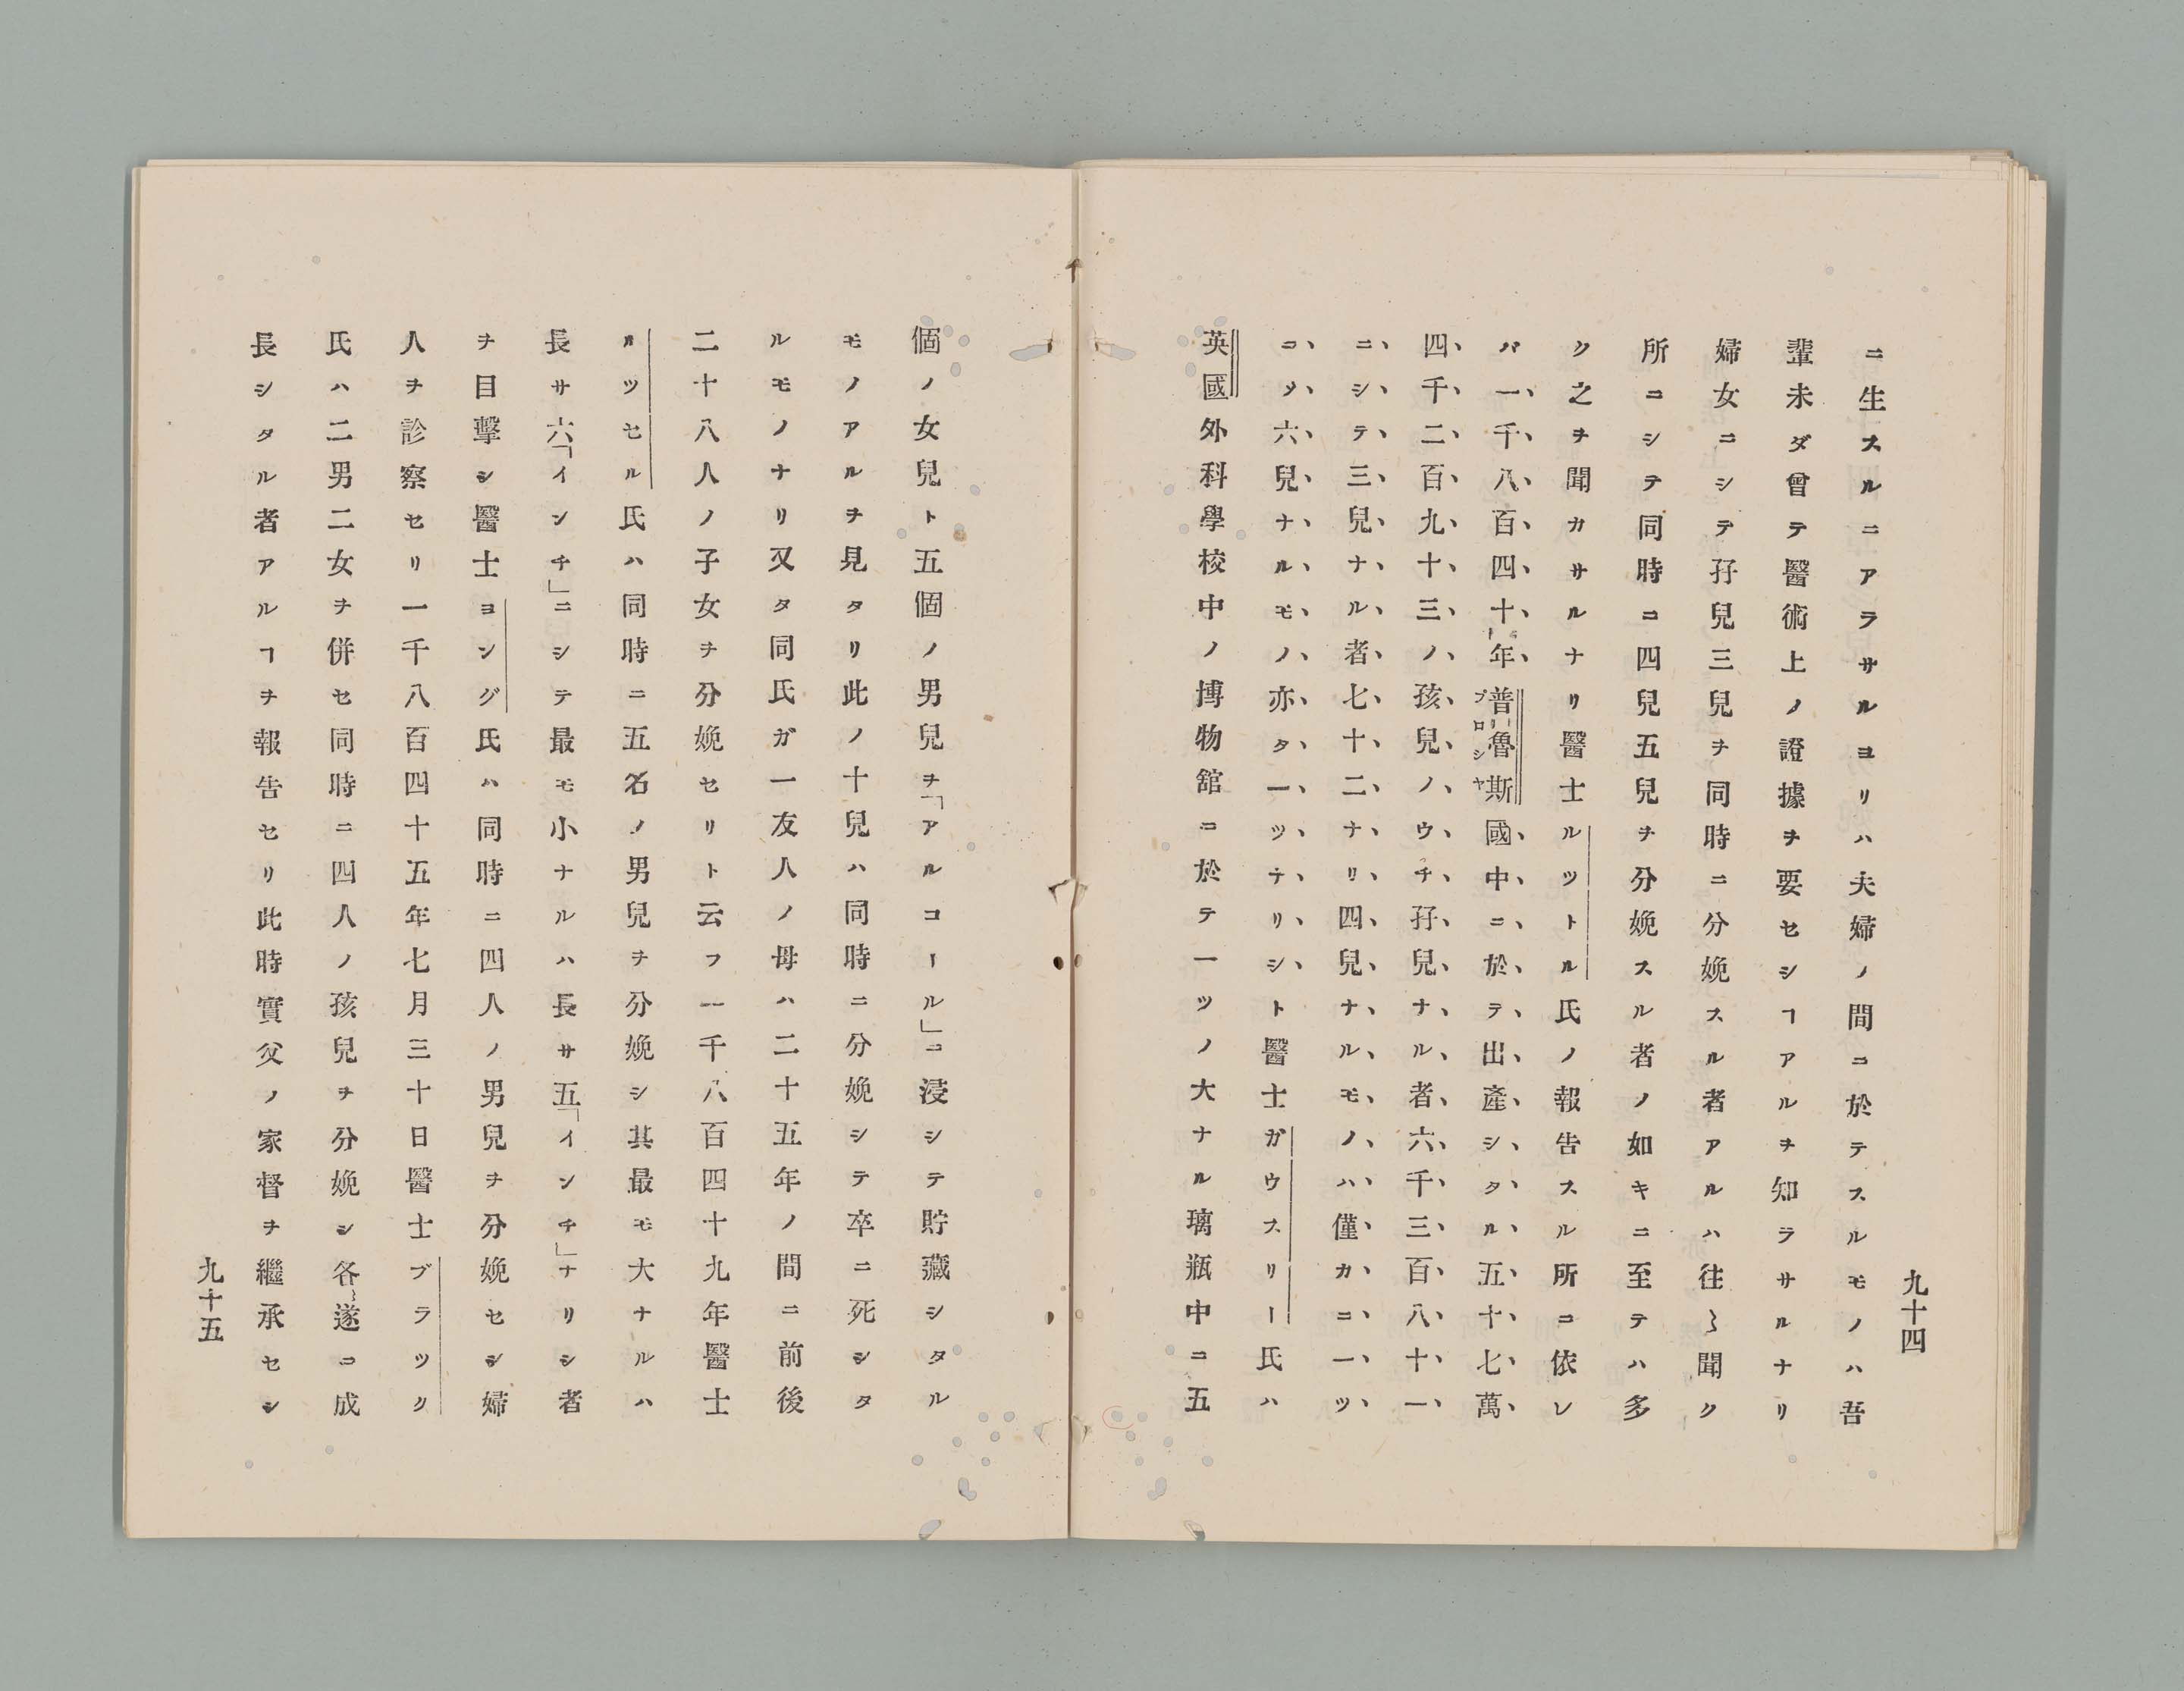 九十四
ニ生スルニアラサルヨリハ夫婦ノ間ニ於テスルモノハ吾
輩未ダ曾テ醫術上ノ證據ヲ要セシヿアルヲ知ラサルナリ
婦女ニシテ孖兒三兒ヲ同時ニ分娩スル者アルハ往〻聞ク
所ニシテ同時ニ四兒五兒ヲ分娩スル者ノ如キニ至テハ多
ク之ヲ聞カサルナリ醫士ルツトル氏ノ報告スル所ニ依レ
バ一千八百四十年普魯斯國中ニ於テ出產シタル五十七萬
プロシヤ
四千二百九十三ノ孩兒ノウチ孖兒ナル者六千三百八十一
ニシテ三兒ナル者七十二ナリ四兒ナルモノハ僅カニ一ツ
ニメ六兒ナルモノ亦タ一ツナリシト醫士ガウスリー氏ハ
英國外科學校中ノ博物舘ニ於テ一ツノ大ナル璃瓶中ニ五
個ノ女兒ト五個ノ男兒ヲ「アルコール」ニ浸シテ貯藏シタル
モノアルヲ見タリ此ノ十兒ハ同時ニ分娩シテ卒ニ死シタ
ルモノナリ又タ同氏ガ一友人ノ母ハ二十五年ノ間ニ前後
二十八人ノ子女ヲ分娩セリト云フ一千八百四十九年醫士
ルツセル氏ハ同時ニ五名ノ男兒ヲ分娩シ其最モ大ナルハ
長サ六「インチ」ニシテ最モ小ナルハ長サ五「インチ」ナリシ者
ヲ目擊シ醫士ヨング氏ハ同時ニ四人ノ男兒ヲ分娩セシ婦
人ヲ診察セリ一千八百四十五年七月三十日醫士ブラツク
氏ハ二男二女ヲ併セ同時ニ四人ノ孩兒ヲ分娩シ各〻遂ニ成
長シタル者アルヿヲ報告セリ此時實父ノ家督ヲ繼承セシ
九十五